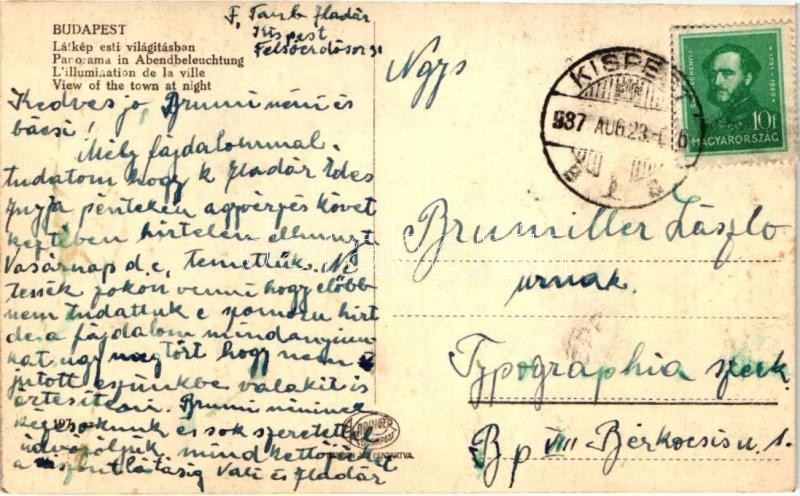 BUDAPEST
Látkép esti világításban
Panorama in Abendbeleuchtung
L'illumination de la ville
View of the town at night
F. Taub Aladár
Kispest
Felsőerdősor 31
Kedves jó Brumi néni és
bácsi!
Mély fájdalommal
tudatom hogy k Aladár Édes
Anyja pénteken agyvérzés követ
keztében hirtelen elhunyt
Vasárnap d.e. temettük. Ne
tessék zokon venni hogy előbb
nem tudattuk e szomorú hírt
de a fájdalom mindannyiun
kat úgy megtört hogy nem
jutott eszünkbe valakit is
értesíteni. Brumi néninek
kézcsókunk és sok szeretettel
üdvözöljük mindkettőjüket
a viszontlátásig Vali és Aladár
Ngys
Brumiller László
urnak.
Typographia szerk.
Bp VIII Bérkocsis u. 1.
KISPEST
937 AUG. 23.
10f
MAGYARORSZÁG
197